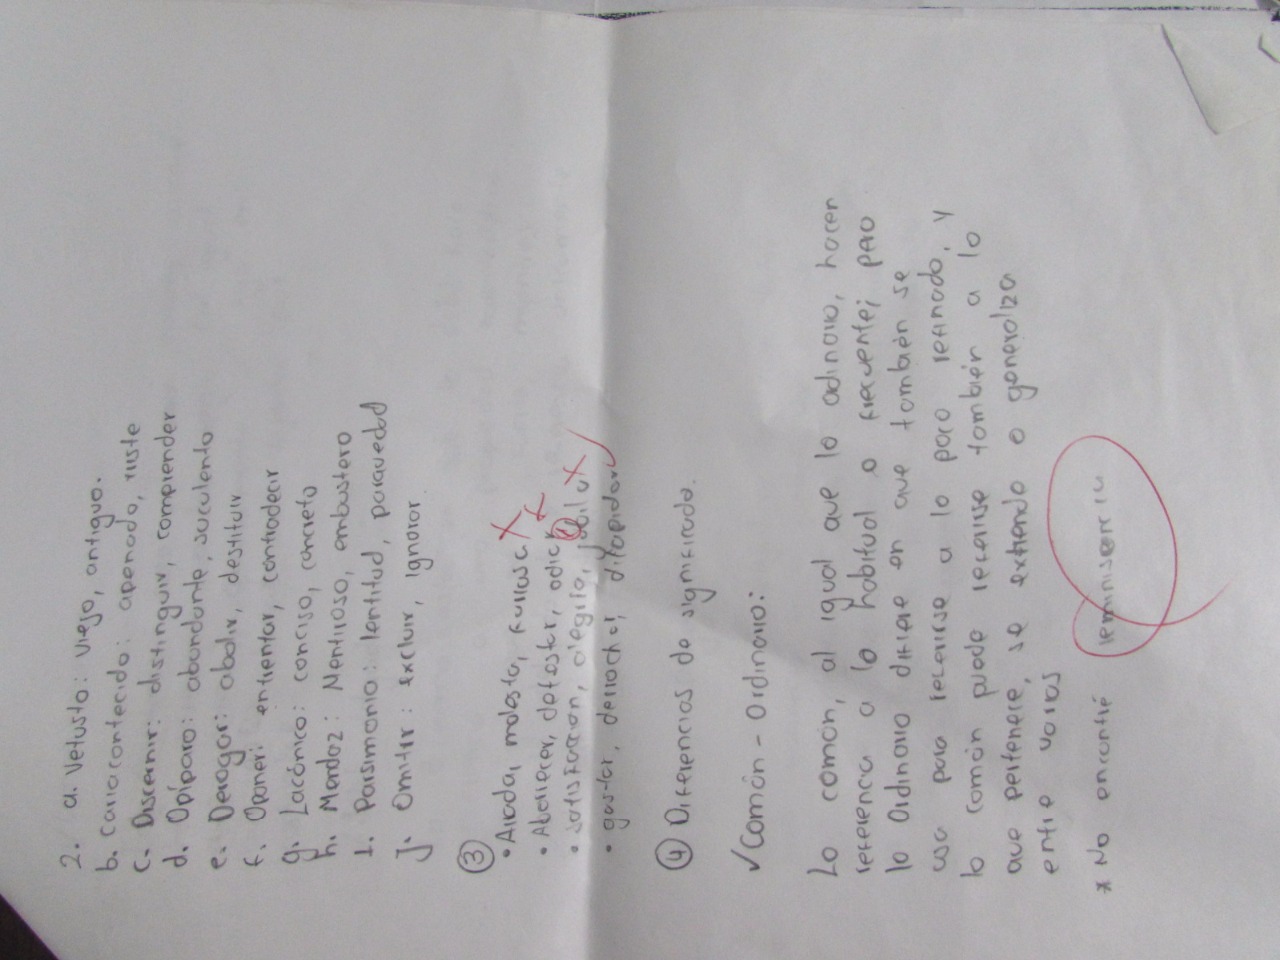 2. a. Vetusto: viejo, antiguo.
b. Cariacontecido: apenado, triste
c. Discernir: distinguir, comprender
d. Opíparo: abundante, suculento
e. Derogar: abolir, destituir
f. Oponer: enfrentar, contradecir
g. Lacónico: conciso, concreto
h. Mendaz: Mentiroso, embustero
i. Parsimonia: lentitud, parquedad
j. Omitir: excluir, ignorar.
③
• Airada, molesta, furiosa
• Aborrecer, detestar, odiar
• satisfacción, alegría,
• gastar, derrochar, dilapidar
④ Diferencias de significado.
✓ Común - Ordinario:
Lo común, al igual que lo ordinario, hacen
referencia a lo habitual o frecuente; pero
lo Ordinario difiere en que también se
usa para referirse a lo poco refinado, y
lo común puede referirse también a lo
que pertenece, se extiende o generaliza
entre varios
* No encontré